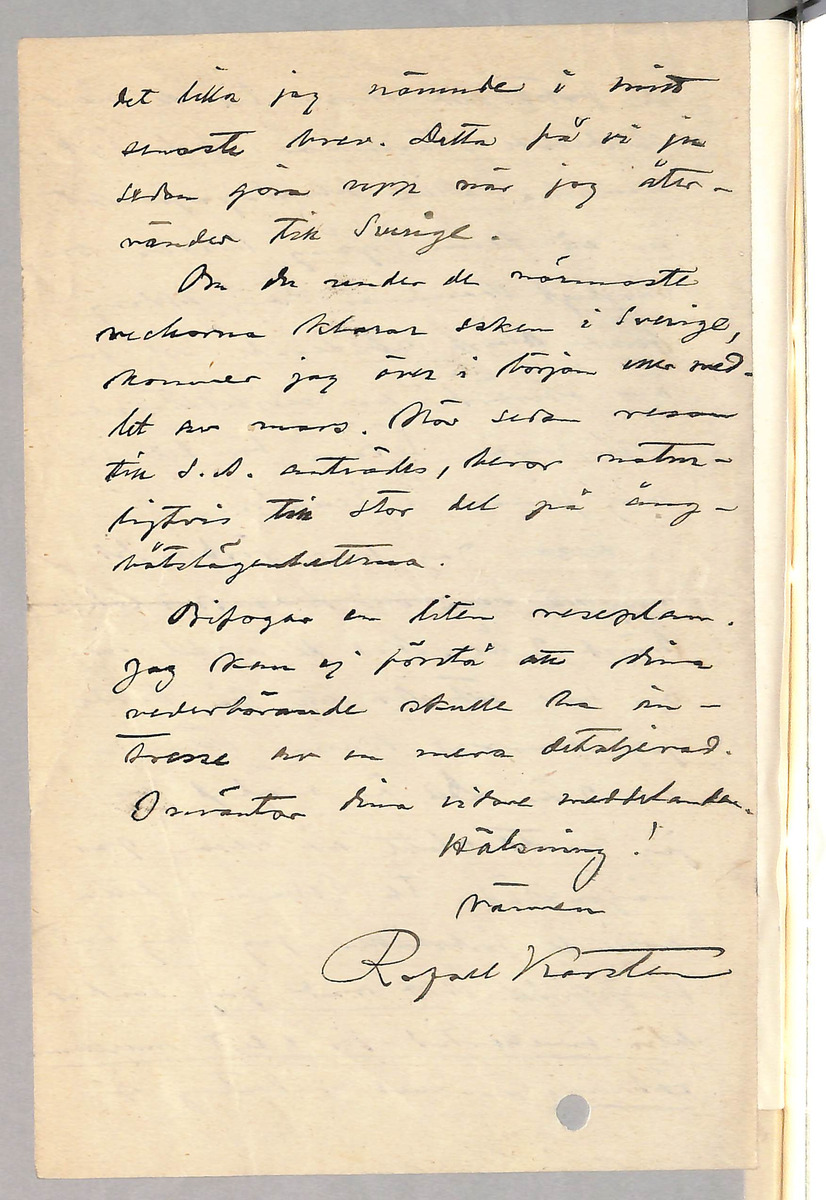 det lilla jag nämnde i mitt
senaste brev. Detta få vi ju
sedan göra upp när jag åter-
vänder till Sverige.
Om du under de närmaste
veckorna klarar saken i Sverige,
kommer jag över i början eller med-
let av mars. När sedan resan
till S.A. anträdes, beror natur-
ligtvis till stor del på ång-
båtslägenheterna.
Bifogar en liten reseplan.
Jag kan ej förstå att dina
vederbörande skulle ha in-
tresse av en mera detaljerad.
Omväntar dina vidare meddelanden.
Hälsning!
Vännen
Rafael Karsten